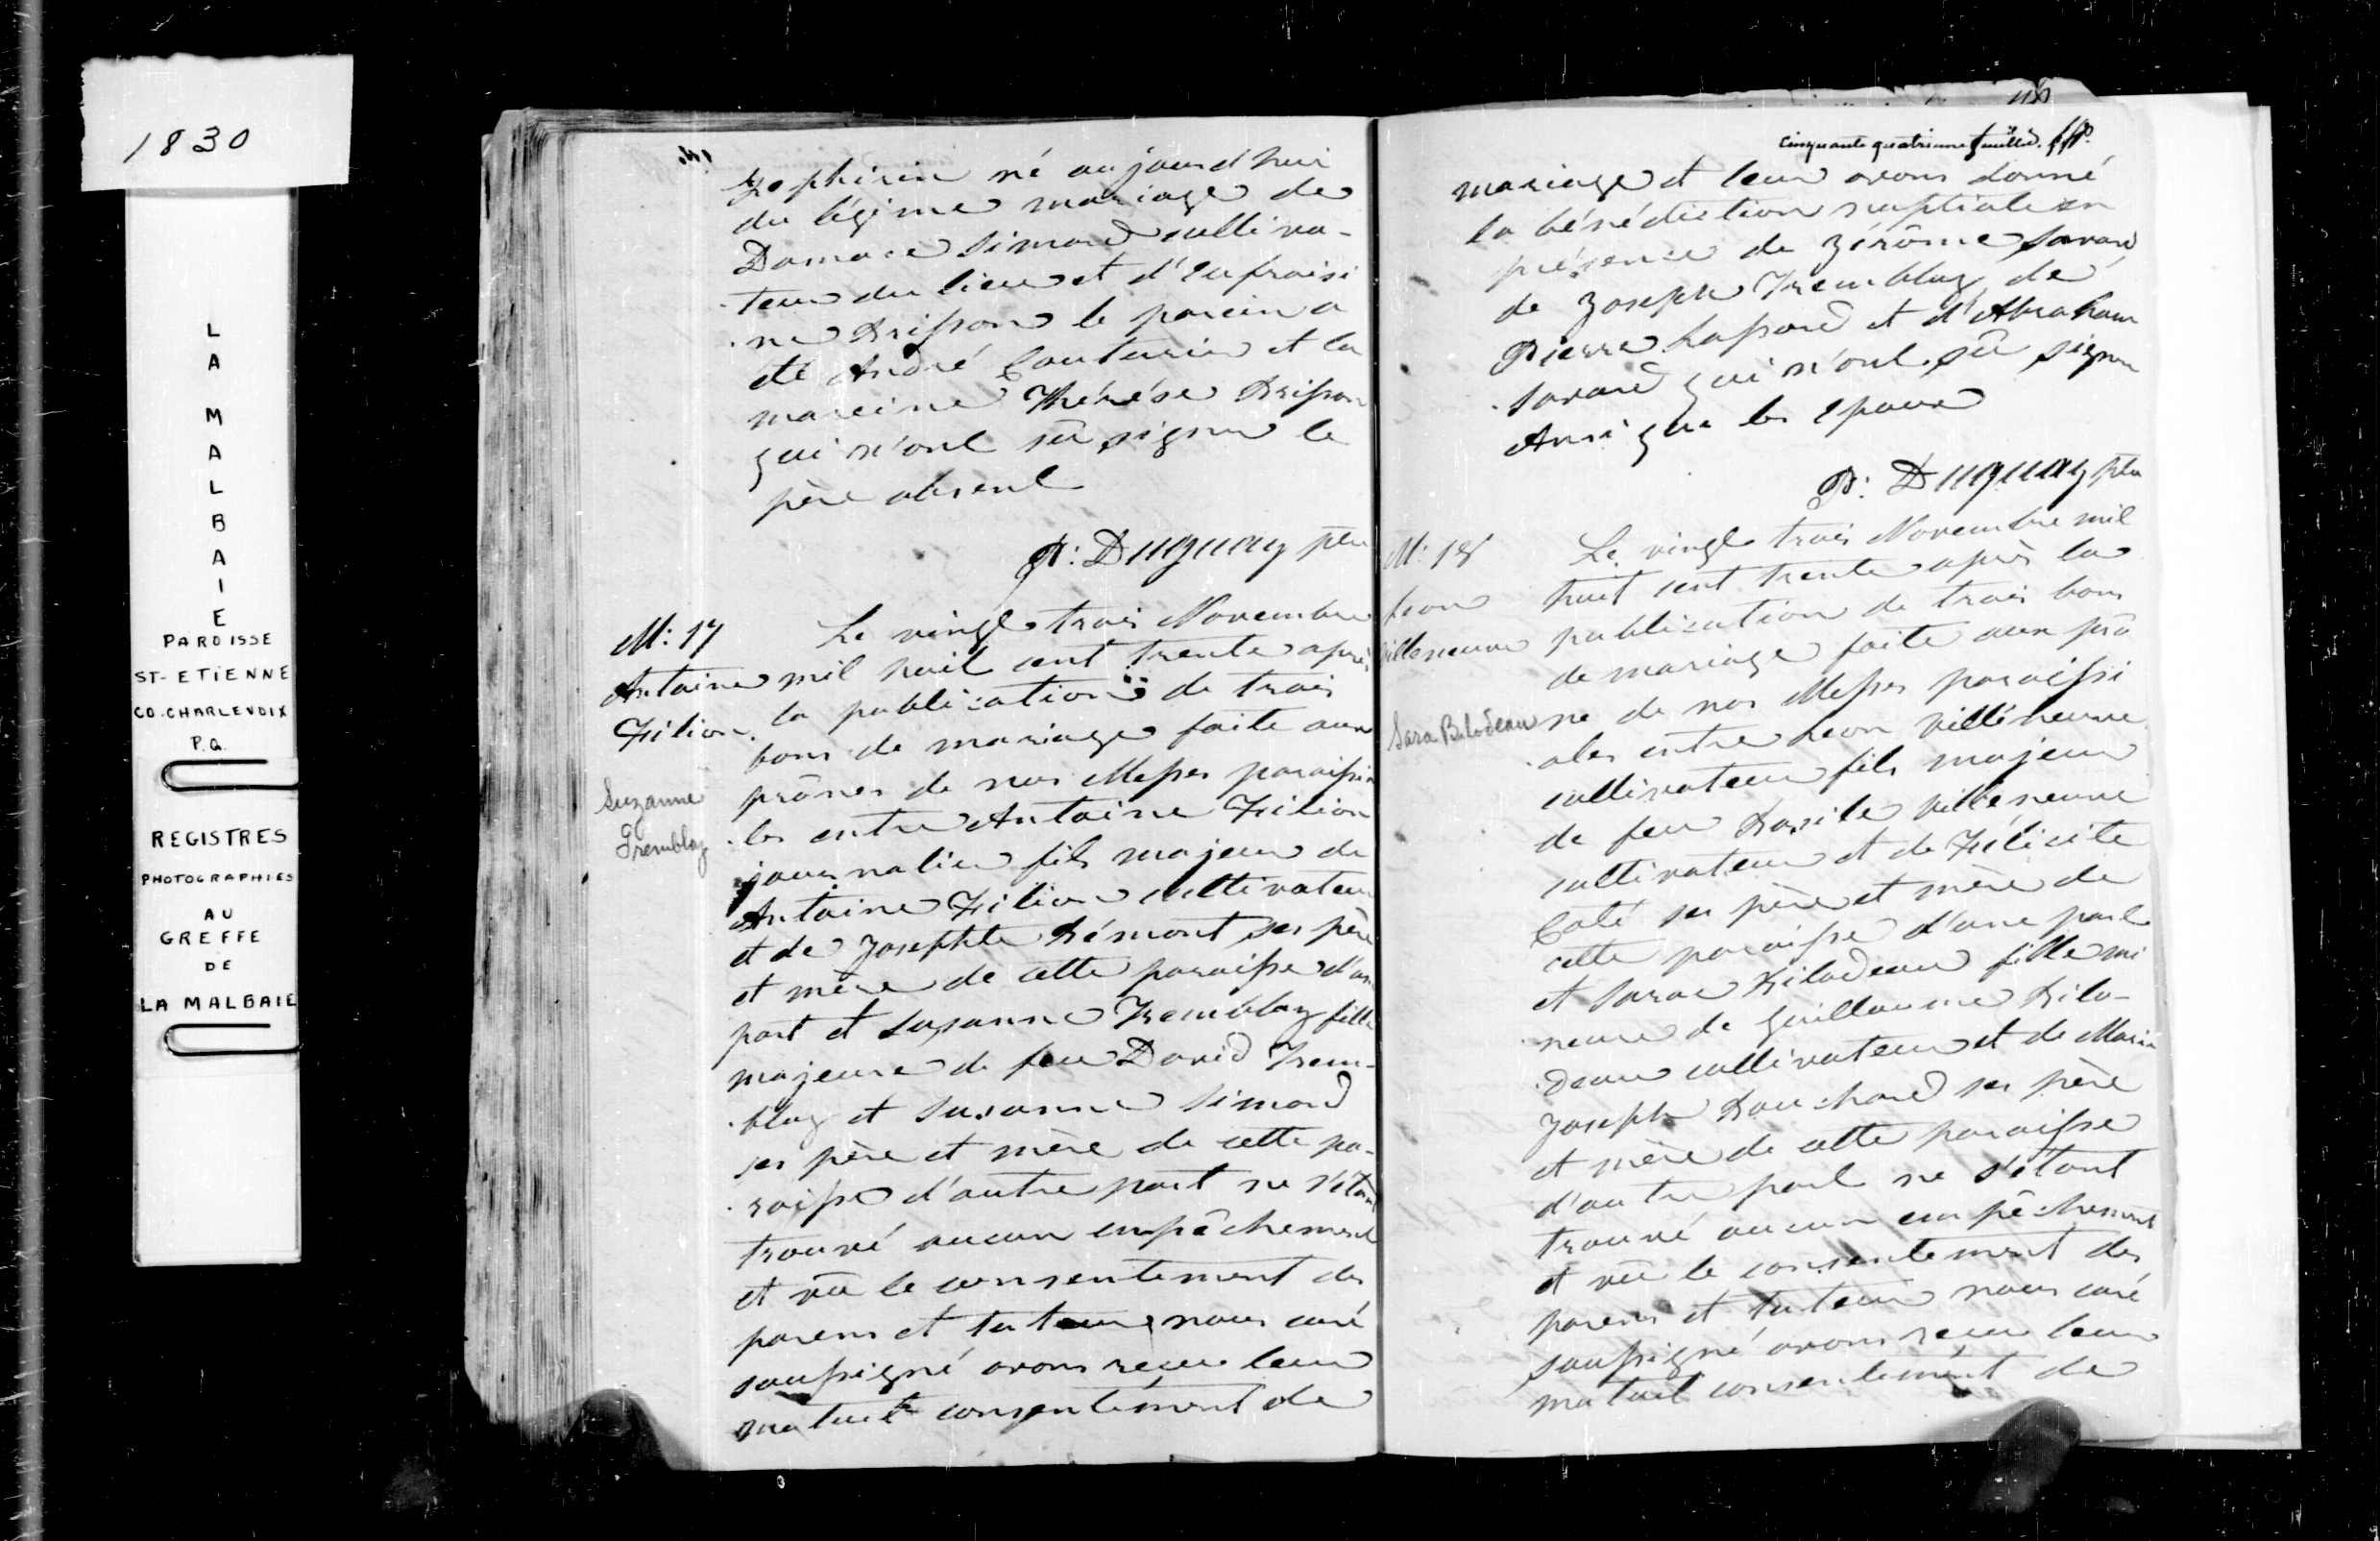 1830
LA MALBAIE
PAROISSE
ST-ETIENNE
CO. CHARLEVOIX
P.Q.
REGISTRES
PHOTOGRAPHIES
AU
GREFFE
DE
LA MALBAIE
Zephirin né aujourd'hui
du légime mariage de
Damase Simard cultiva-
teur du lieu et d'Eufrosi
ne Brisson le parein a
été André Couturier et la
mareine Thérése Brisson
qui n'ont sû signer le
père absent
P: Duguay ptre
M: 17
Antoine
Filion
Suzanne
Tremblay
Le vingt trois Novembre
mil huit cent trente après
la publication de trois
bans de mariage faite aux
prônes de nos Messes paroissia
les entre Antoine Filion
journalier fils majeur de
Antoine Filion cultivateur
et de Josephte Rémont ses père
et mère de cette paroisse d'une
part et Susanne Tremblay fille
majeure de feu David Trem-
blay et Susanne Simard
ses père et mère de cette pa-
roisse d'autre part ne s'étant
trouvé aucun empêchement
et vû le consentement des
parens et tuteur nous curé
soussigné avons reçu leur
mutuel consentement de
cinquante quatrieme feuillet.
mariage et leur avons donné
la bénédiction nuptiale en
présence de Jérôme Savard
de Joseph Tremblay de
Pierre Laforest et d'Abraham
Savard qui n'ont sû signer
Ansi que les epoux
P: Duguay ptre
M: 18
Leon
Villeneuve
Sara Bilodeau
Le vingt trois Novembre mil
huit cent trente après la
publication de trois bans
de mariage faite aux prô
ne de nos Messes paroissi
ales entre Leon Villeneuve
cultivateur fils majeur
de feu Basile Villeneuve
cultivateur et de Félicité
Coté ses père et mère de
cette paroisse d'une part
et Sarae Bilodeau fille mi
neure de Guillaume Bilo-
deau cultivateur et de Marie
Joseph Bouchard ses père
et mère de cette paroisse
d'autre part ne s'étant
trouvé aucun empêchement
et vû le consentement des
parens et tuteur nous curé
soussigné avons reçu leur
mutuel consentement de